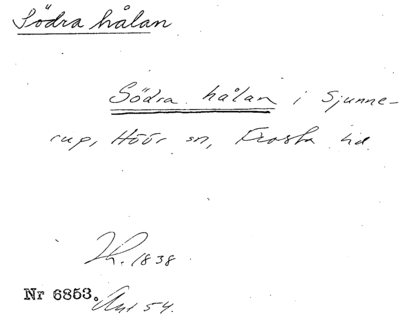 Södra hålan
Södra hålan i Sjunne-
rup, Höör sn, Frosta hd
Lh. 1838
Nr 6853. Avs 54.